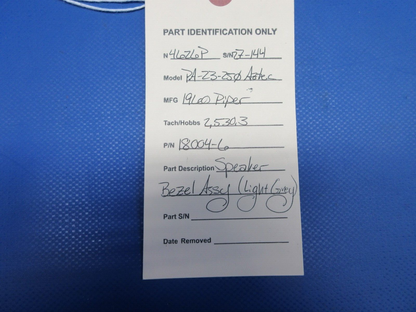 PART IDENTIFICATION ONLY
N 4626P S/N 27-144
Model PA-23-250 Aztec
MFG 1960 Piper
Tach/Hobbs 2,530.3
P/N 18004-6
Part Description Speaker
Bezel Assy (Light Grey)
Part S/N
Date Removed